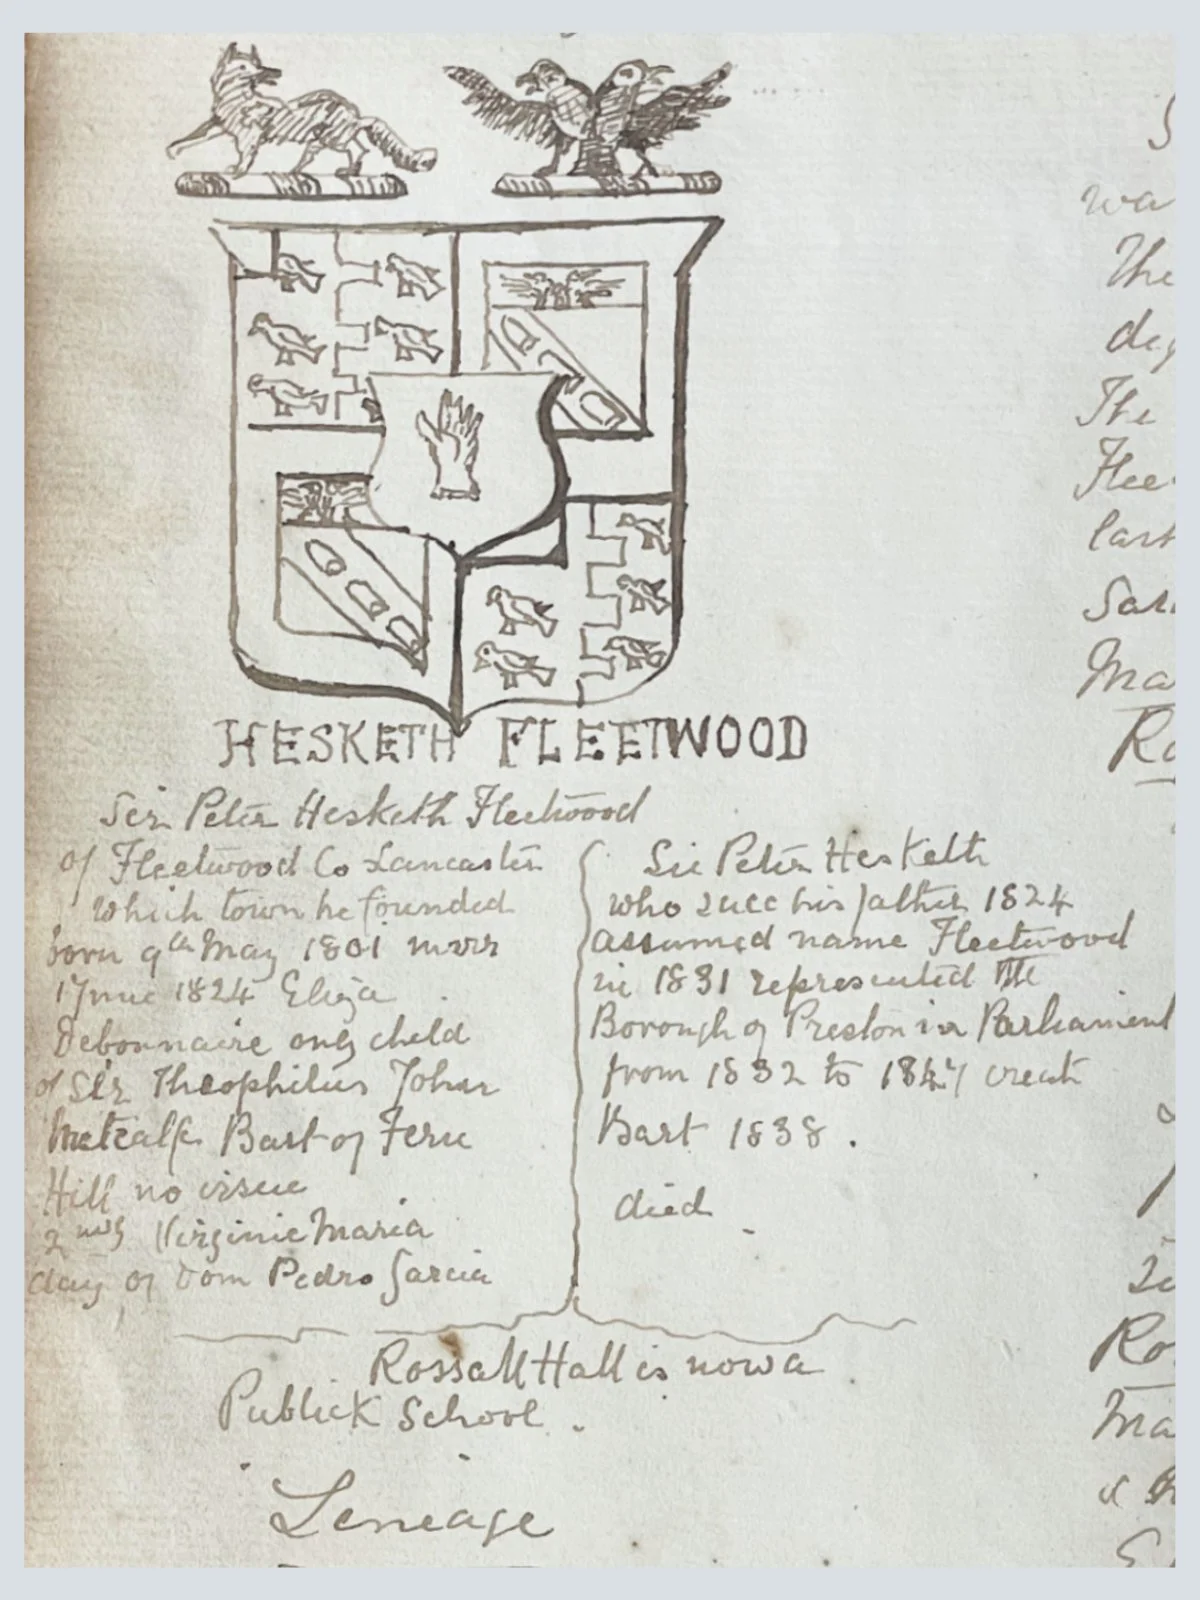 HESKETH FLEETWOOD
Sir Peter Hesketh Fleetwood
of Fleetwood Co Lancaster
which town he founded
born 9th May 1801 marr
1824 Eliza
Debonnaire only child
of Sir Theophilus John
Metcalfe Bart of Fern
Hill no issue
2ndly Virginie Maria
day of Dom Pedro Garcia
Sir Peter Hesketh
who succ his father 1824
assumed name Fleetwood
in 1831 represented the
Borough of Preston in Parliament
from 1832 to 1847 creat
Bart 1838 .
died
Rossall Hall is now a
Publick School .
Leneage
S
wa
The
day
The
Flee
last
Sar
Ma
Ro
Ro
Ma